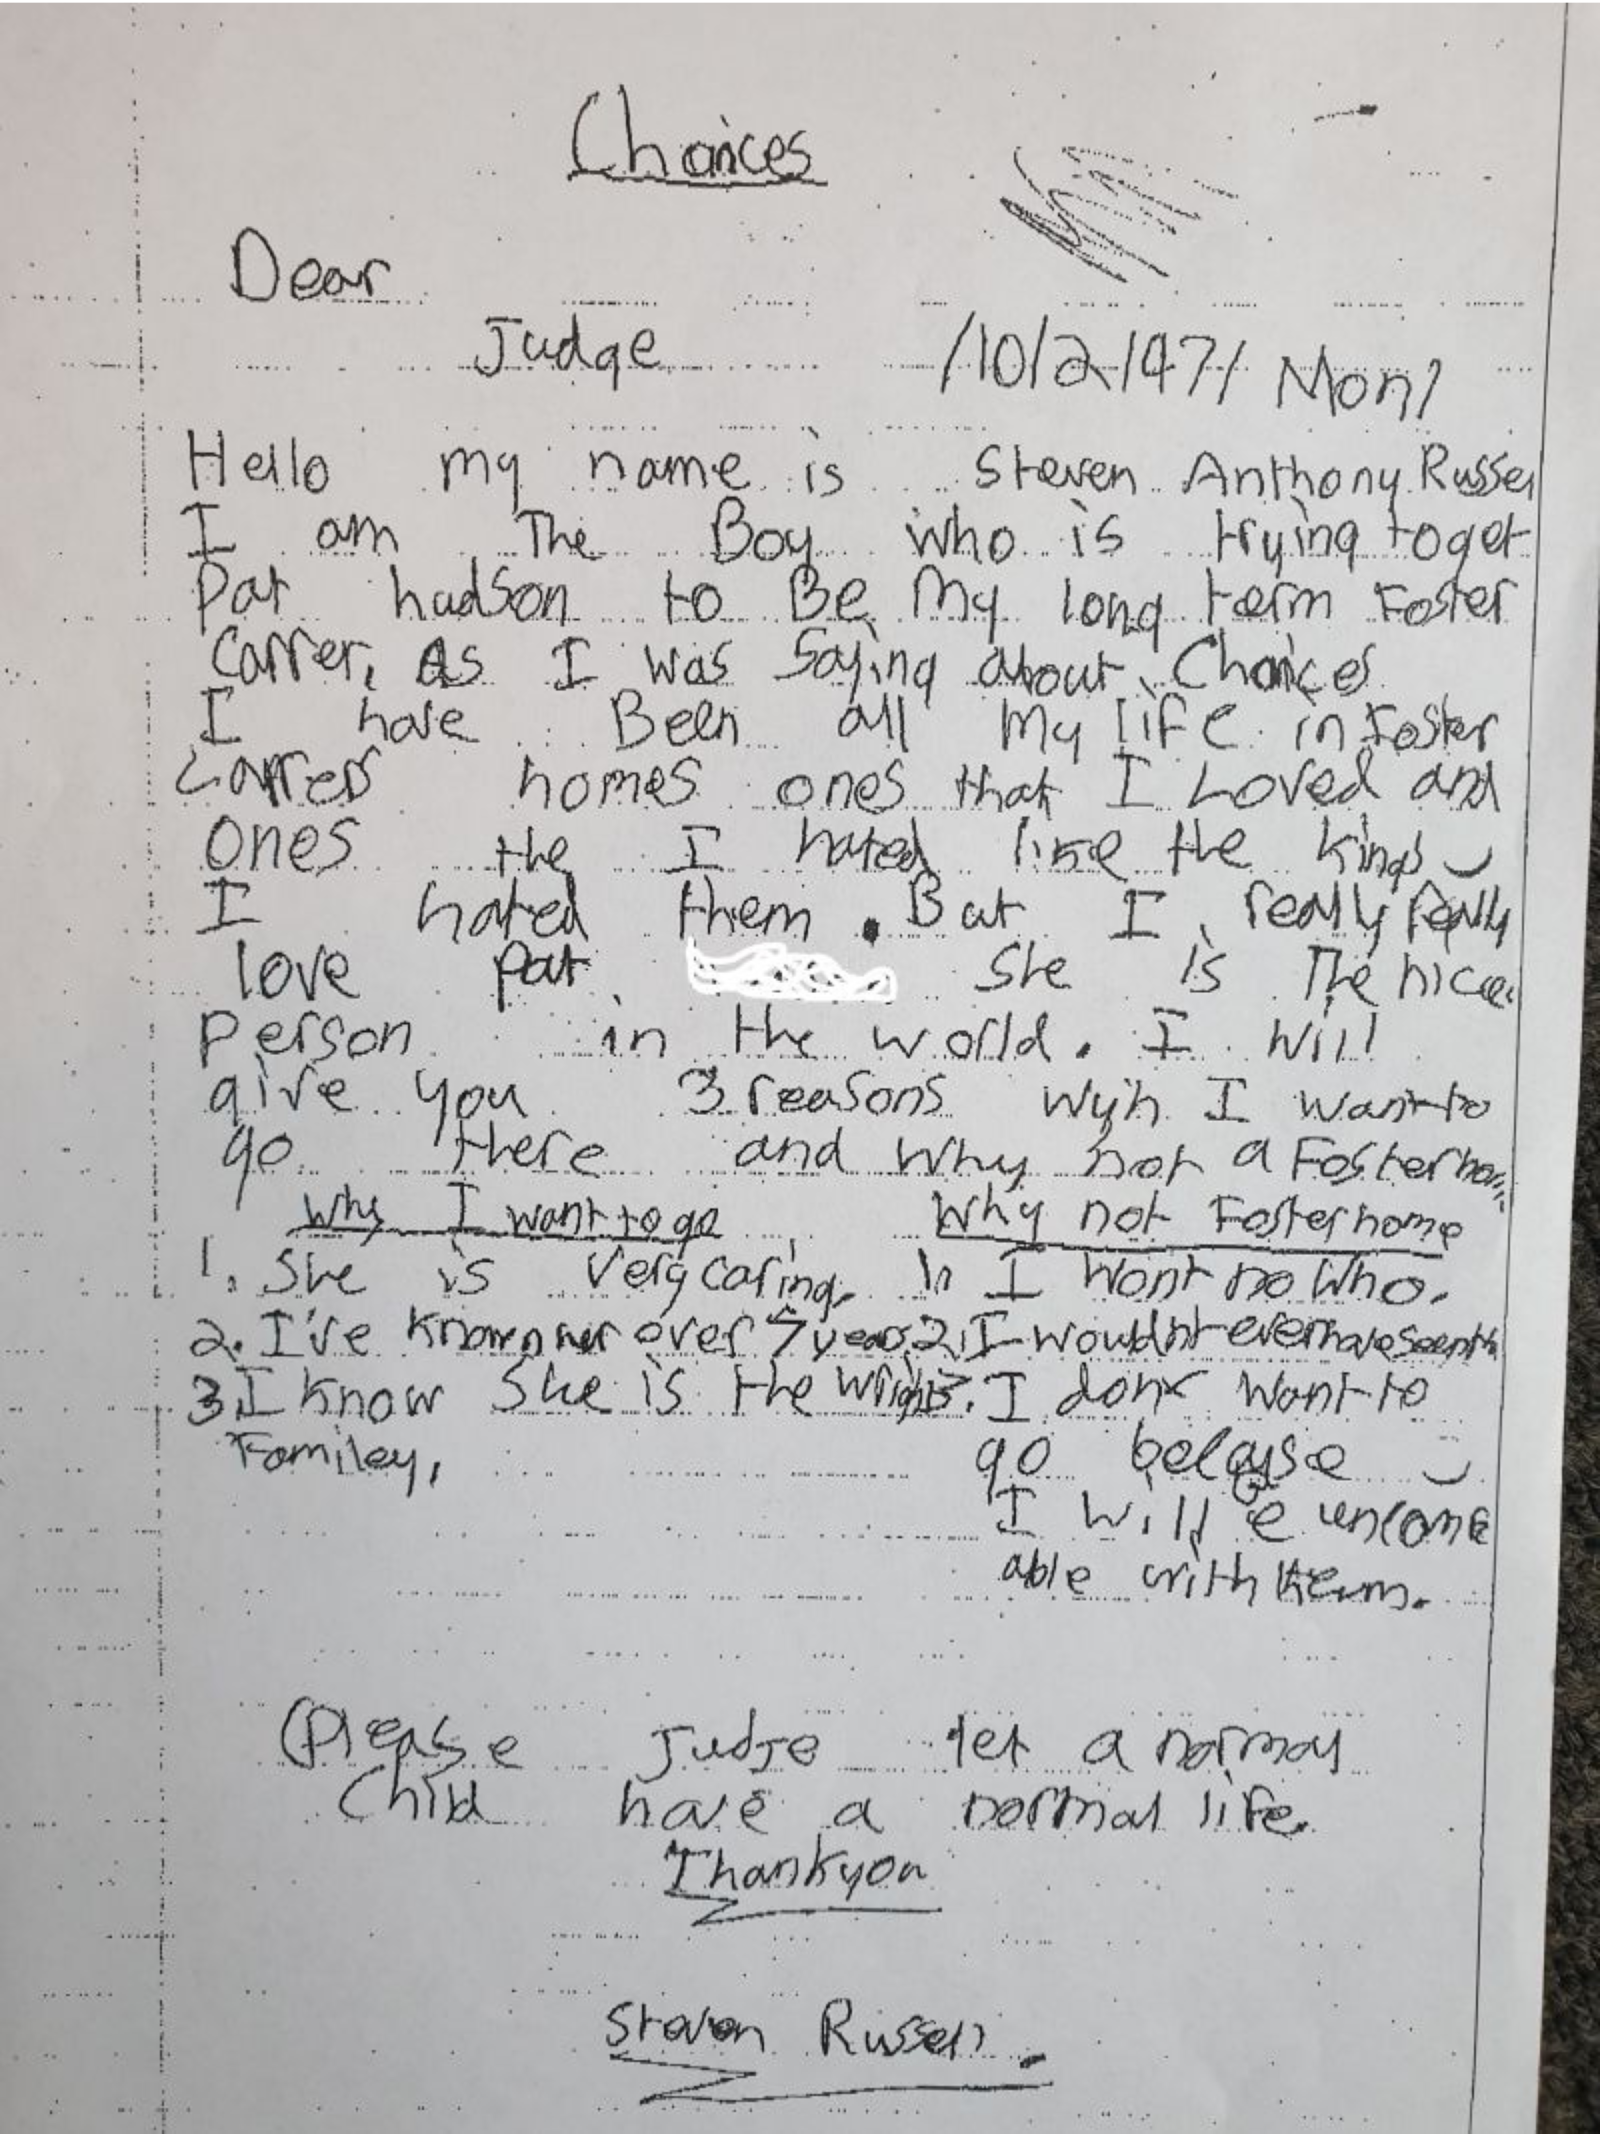 Chances
Dear
Judge /10/2/47/ Mon/
Hello my name is Steven Anthony Russell
I am The Boy who is trying to get
Pat hudson to Be My long term Foster
Carrer. As I was Saying about Chances
I have Been all My life in Foster
Carrers homes ones that I Loved and
ones the I hated like the Kings
I hated them. But I really really
love pat She is The nice
Person in the world. I will
give you 3 reasons wyh I want to
go there and why not a Foster home
Why I want to go Why not Foster home
1. She is Very caring. 1. I Wont no Who.
2. I've Known her over 7 years. 2. I wouldn't ever have seen th
3. I know She is the Wright 3. I dont Want to
Familey, go because
I will Be uncomf
able with them.
(Please Judje let a normal
Child have a normal life.
Thankyou
Steven Russell.